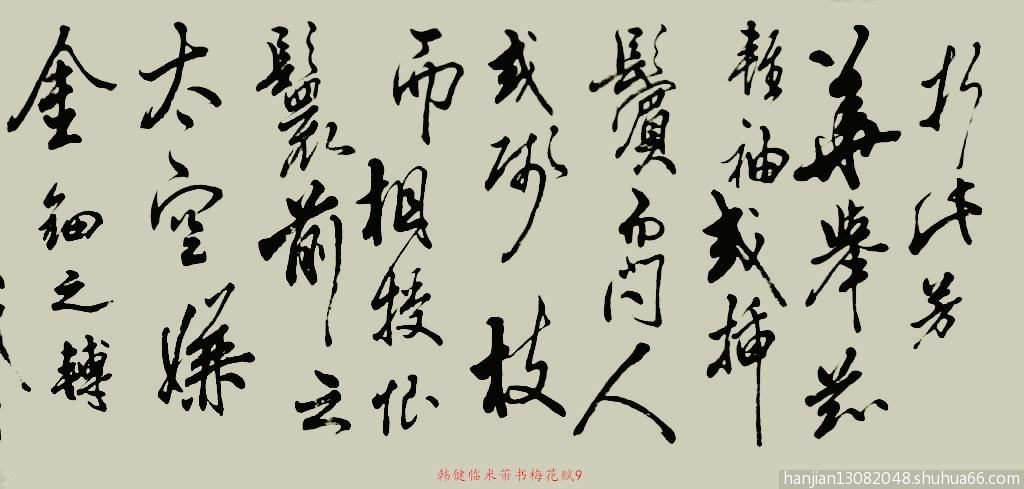 折此芳
華舉茲
輕袖或插
鬢而问人
或残枝
而相授恨
鬟前之
太空嫌
金钿之轉
韩健临米芾书梅花赋9
hanjian13082048.shuhua66.com